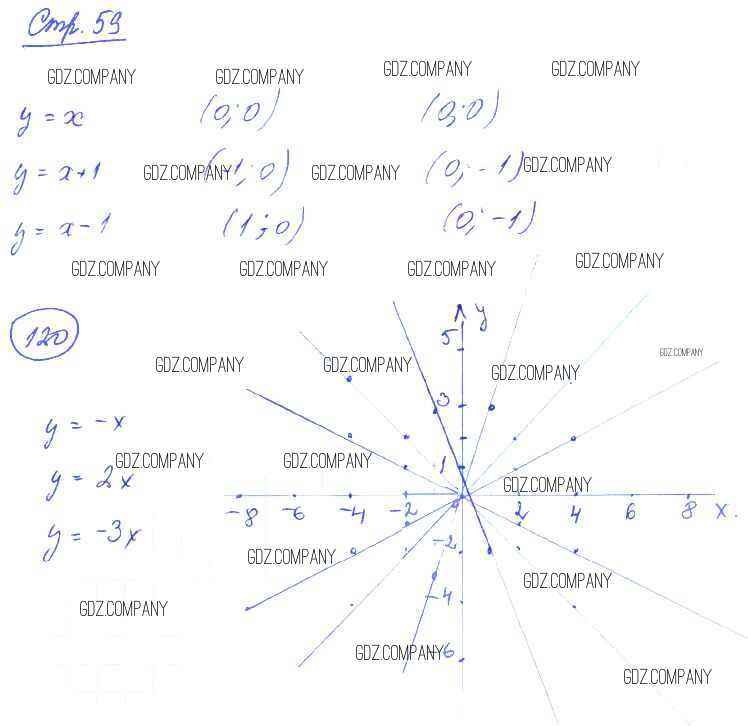 Стр. 59
GDZ.COMPANY GDZ.COMPANY GDZ.COMPANY GDZ.COMPANY
y = x (0; 0) (0; 0)
y = x+1 GDZ.COMPANY (-1; 0) GDZ.COMPANY (0; -1) GDZ.COMPANY
y = x-1 (1; 0) (0; -1)
GDZ.COMPANY GDZ.COMPANY GDZ.COMPANY GDZ.COMPANY
y
120 5
GDZ.COMPANY GDZ.COMPANY GDZ.COMPANY GDZ.COMPANY
3
y = -x
GDZ.COMPANY GDZ.COMPANY 1
y = 2x GDZ.COMPANY
-8 -6 -4 -2 0 2 4 6 8 x.
y = -3x -2
GDZ.COMPANY GDZ.COMPANY
GDZ.COMPANY -4
GDZ.COMPANY -6
GDZ.COMPANY